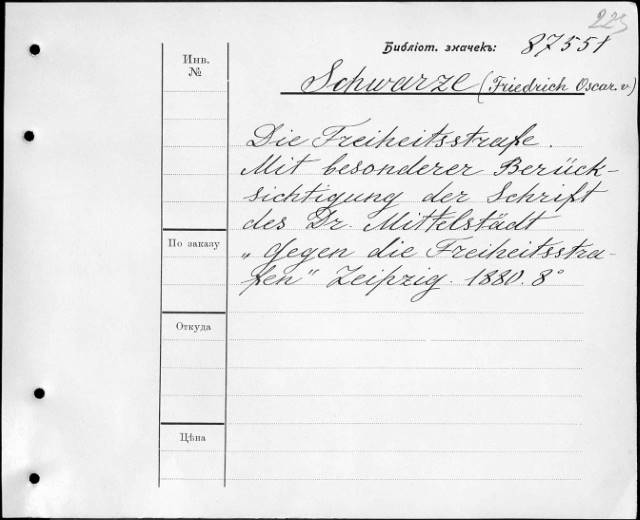 223
Библіот. значекъ: 87551
Инв.
№
Schwarze (Friedrich Oscar. v.)
Die Freiheitsstrafe.
Mit besonderer Berück-
sichtigung der Schrift
des Dr. Mittelstädt
По заказу
„Gegen die Freiheitsstra-
fen" Leipzig. 1880. 8°
Откуда
Цѣна